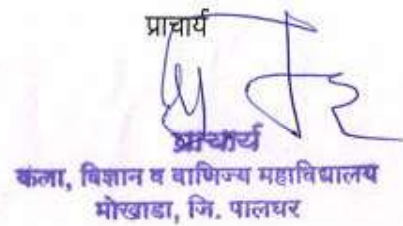 प्राचार्य
प्राचार्य
कला, विज्ञान व वाणिज्य महाविद्यालय
मोखाडा, जि. पालघर